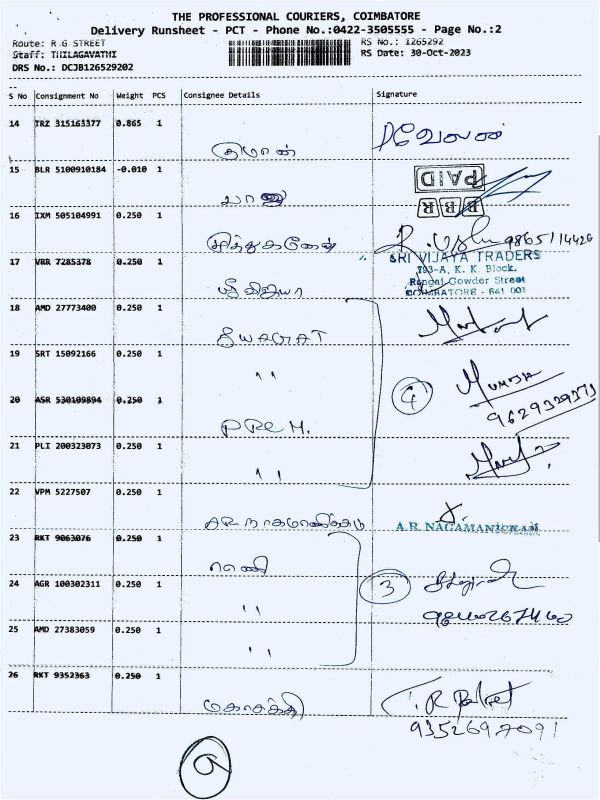 THE PROFESSIONAL COURIERS, COIMBATORE
Delivery Runsheet - PCT - Phone No.:0422-3505555 - Page No.:2
Route: R G STREET RS No.: 1265292
Staff: THILAGAVATHI RS Date: 30-Oct-2023
DRS No.: DCJB126529202
S No Consignment No Weight PCS Consignee Details Signature
14 TRZ 315163377 0.865 1
குமரன் வேலன்
15 BLR 5100910184 -0.010 1
PAID
BBR
16 IXM 505104991 0.250 1
முத்துகணேஷ் 9865114426
17 VRR 7285378 0.250 1
SRI VIJAYA TRADERS
793-A, K. K. Block.
Rangai Gowder Street
COIMBATORE - 641 001
ஸ்ரீ விஜயா
18 AMD 27773400 0.250 1
19 SRT 15092166 0.250 1
"
20 ASR 530109894 0.250 1
4
9629329373
PREM.
21 PLI 200323073 0.250 1
"
22 VPM 5227507 0.250 1
AR நாகமாணிக்கம் A.R. NAGAMANICKAM
23 RKT 9063076 0.250 1
ராணி
24 AGR 100302311 0.250 1
3
"
25 AMD 27383059 0.250 1
"
26 RKT 9352363 0.250 1
மகாசக்தி
9352697091
9